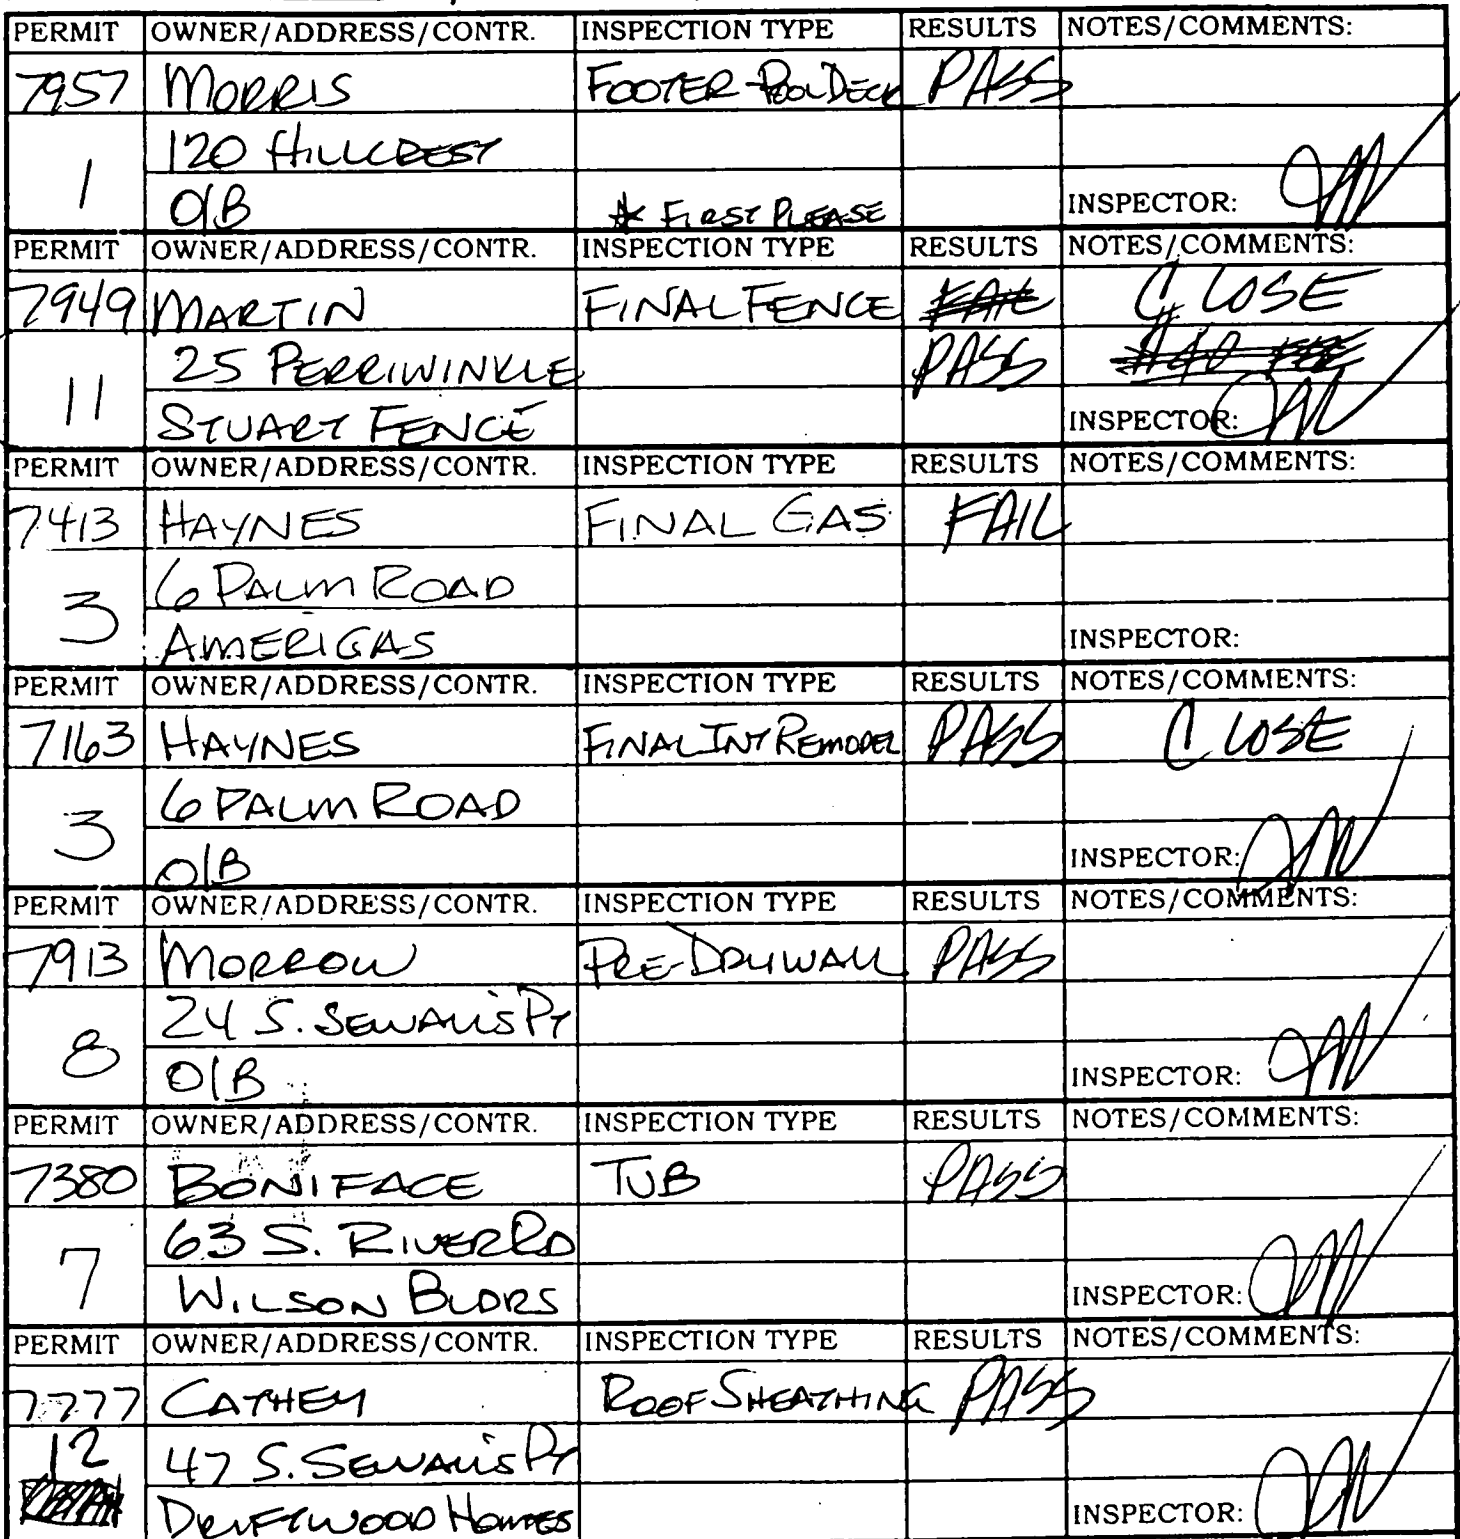 PERMIT OWNER/ADDRESS/CONTR. INSPECTION TYPE RESULTS NOTES/COMMENTS:
7957 MORRIS FOOTER-POOL DECK PASS
120 HILLCREST
1
O/B * FIRST PLEASE INSPECTOR:
PERMIT OWNER/ADDRESS/CONTR. INSPECTION TYPE RESULTS NOTES/COMMENTS:
7949 MARTIN FINAL FENCE FAIL CLOSE
25 PERRIWINKLE PASS $40 FEE
11
STUART FENCE INSPECTOR:
PERMIT OWNER/ADDRESS/CONTR. INSPECTION TYPE RESULTS NOTES/COMMENTS:
7413 HAYNES FINAL GAS FAIL
6 PALM ROAD
3
AMERIGAS INSPECTOR:
PERMIT OWNER/ADDRESS/CONTR. INSPECTION TYPE RESULTS NOTES/COMMENTS:
7163 HAYNES FINAL INT REMODEL PASS CLOSE
6 PALM ROAD
3
O/B INSPECTOR:
PERMIT OWNER/ADDRESS/CONTR. INSPECTION TYPE RESULTS NOTES/COMMENTS:
7913 MORROW PRE-DRYWALL PASS
24 S. SEWALL'S PT
8
O/B INSPECTOR:
PERMIT OWNER/ADDRESS/CONTR. INSPECTION TYPE RESULTS NOTES/COMMENTS:
7380 BONIFACE TUB PASS
63 S. RIVER RD
7
WILSON BLDRS INSPECTOR:
PERMIT OWNER/ADDRESS/CONTR. INSPECTION TYPE RESULTS NOTES/COMMENTS:
7777 CATHEY ROOF SHEATHING PASS
12 47 S. SEWALL'S PT
DRIFTWOOD HOMES INSPECTOR: